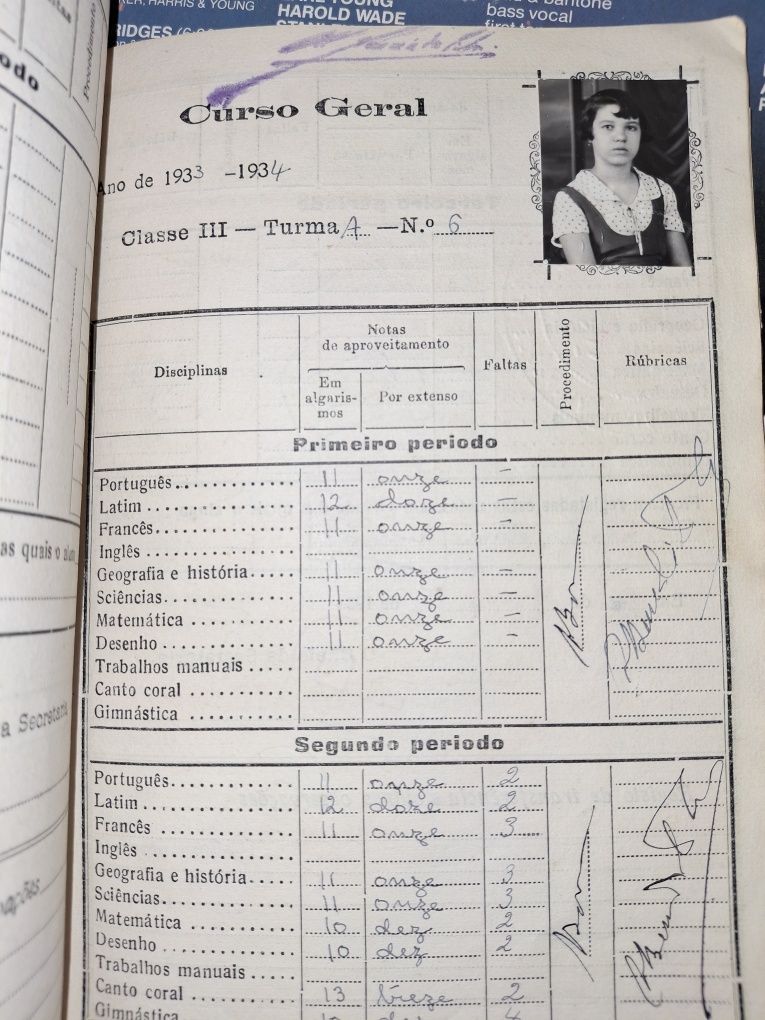 ER, HARRIS & YOUNG
HAROLD WADE
& baritone
bass vocal
RIDGES
odo
Procedimento
Curso Geral
Ano de 1933 - 1934
Classe III — Turma A — N.º 6
Disciplinas
Notas de aproveitamento
Em algarismos
Por extenso
Faltas
Procedimento
Rúbricas
Primeiro periodo
Português 11 onze –
Latim 12 doze –
Francês 11 onze –
Inglês
Geografia e história 11 onze –
Sciências 11 onze –
Matemática 11 onze –
Desenho 11 onze –
Trabalhos manuais
Canto coral
Gimnástica
Bom
Segundo periodo
Português 11 onze 2
Latim 12 doze 2
Francês 11 onze 3
Inglês
Geografia e história 11 onze 3
Sciências 11 onze 3
Matemática 10 dez 2
Desenho 10 dez 2
Trabalhos manuais
Canto coral 13 treze 2
Gimnástica
Bom
as quais o alun
a Secretaria